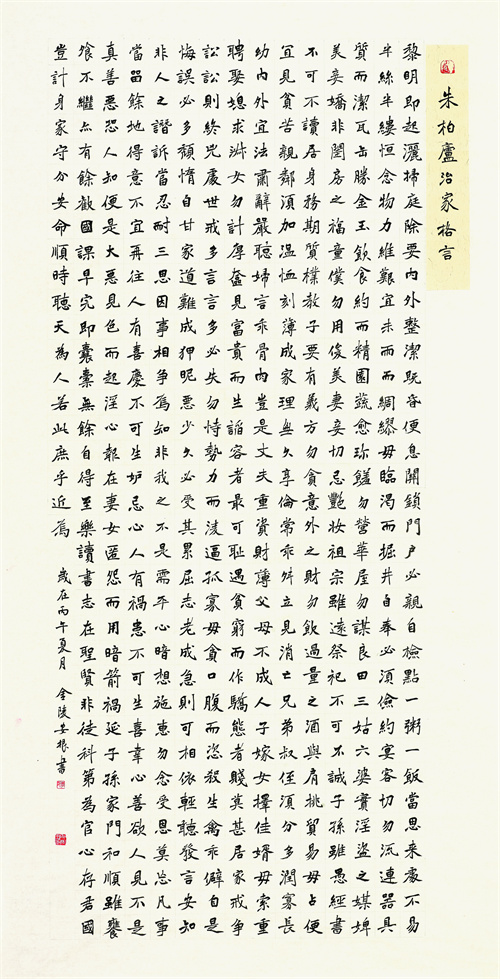 朱柏廬治家格言
黎明即起灑掃庭除要內外整潔既昏便息關鎖門戶必親自檢點一粥一飯當思來處不易
半絲半縷恒念物力維艱宜未雨而綢繆毋臨渴而掘井自奉必須儉約宴客切勿流連器具
質而潔瓦缶勝金玉飲食約而精園蔬愈珍饈勿營華屋勿謀良田三姑六婆實淫盜之媒婢
美妾嬌非閨房之福童僕勿用俊美妻妾切忌艷妝祖宗雖遠祭祀不可不誠子孫雖愚經書
不可不讀居身務期質樸教子要有義方勿貪意外之財勿飲過量之酒與肩挑貿易毋占便
宜見貧苦親鄰須加溫恤刻薄成家理無久享倫常乖舛立見消亡兄弟叔侄須分多潤寡長
幼內外宜法肅辭嚴聽婦言乖骨肉豈是丈夫重資財薄父母不成人子嫁女擇佳婿毋索重
聘娶媳求淑女勿計厚奩見富貴而生諂容者最可恥遇貧窮而作驕態者賤莫甚居家戒爭
訟訟則終凶處世戒多言言多必失勿恃勢力而凌逼孤寡毋貪口腹而恣殺生禽乖僻自是
悔誤必多頹惰自甘家道難成狎昵惡少久必受其累屈志老成急則可相依輕聽發言安知
非人之譖訴當忍耐三思因事相爭焉知非我之不是需平心暗想施惠勿念受恩莫忘凡事
當留餘地得意不宜再往人有喜慶不可生妒忌心人有禍患不可生喜幸心善欲人見不是
真善惡恐人知便是大惡見色而起淫心報在妻女匿怨而用暗箭禍延子孫家門和順雖饔
飧不繼亦有餘歡國課早完即囊橐無餘自得至樂讀書志在聖賢非徒科第為官心存君國
豈計身家守分安命順時聽天為人若此庶乎近焉
歲在丙午夏月 金陵 書